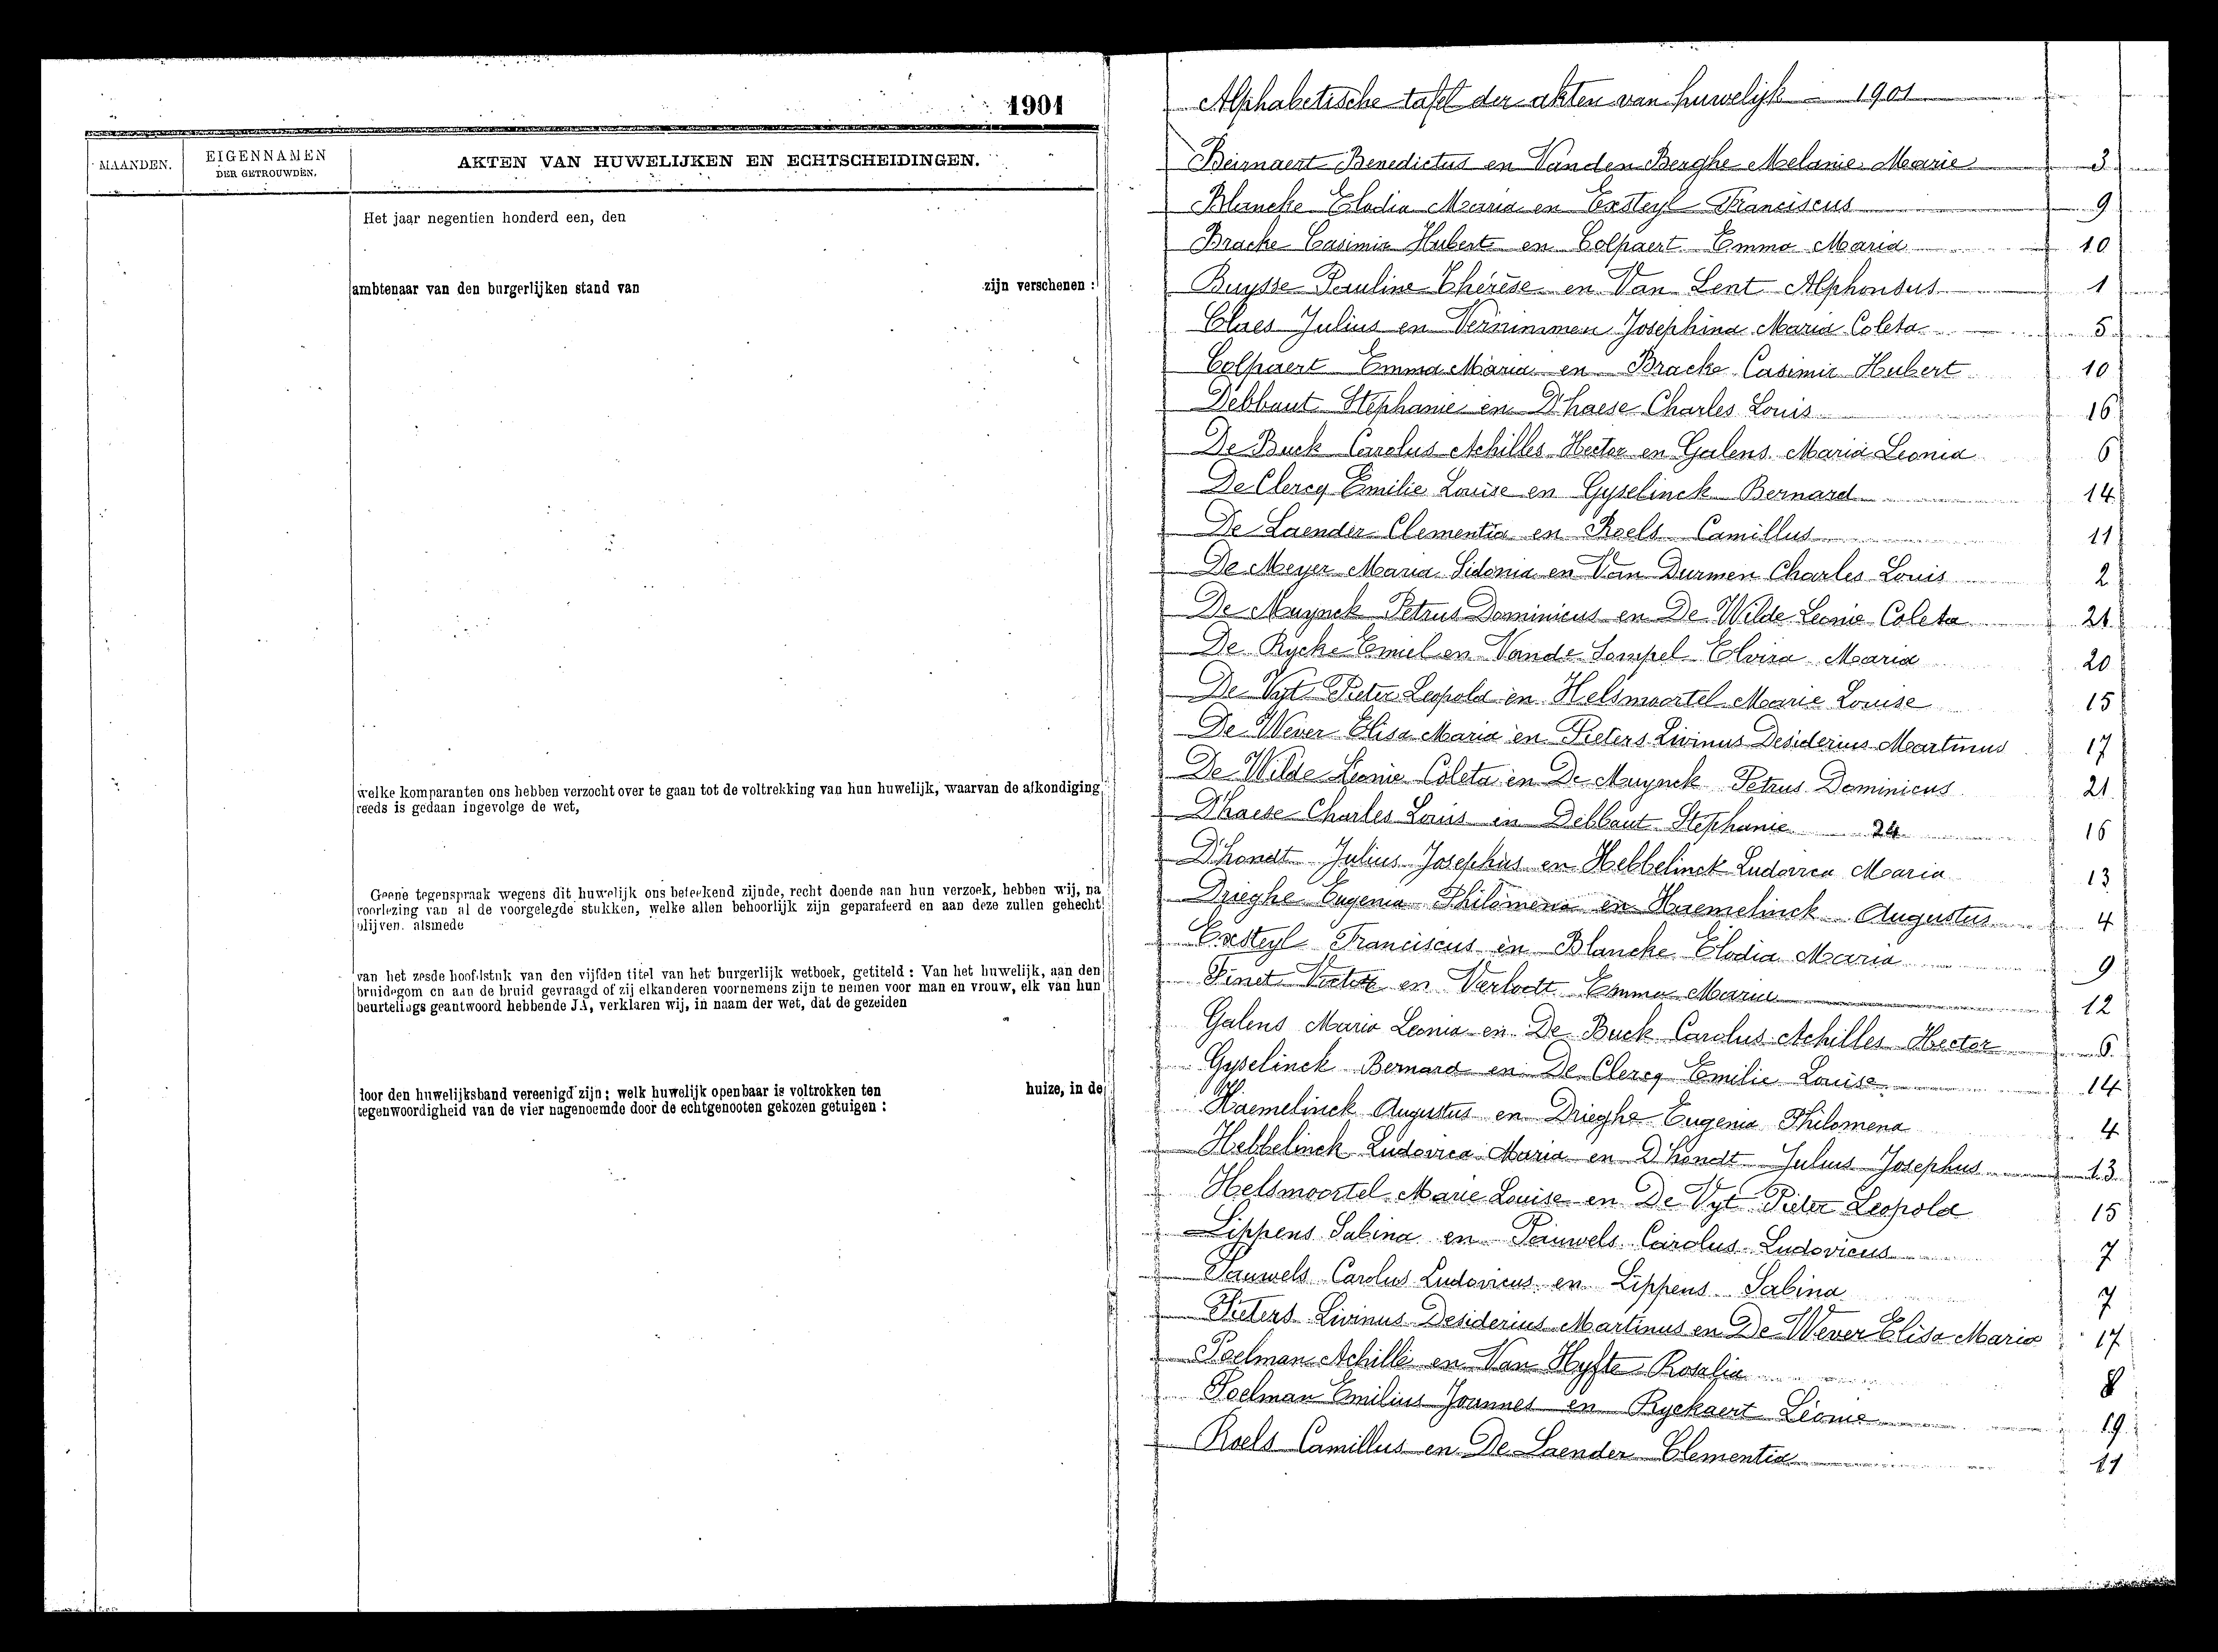 1901
MAANDEN.
EIGENNAMEN
DER GETROUWDEN.
AKTEN VAN HUWELIJKEN EN ECHTSCHEIDINGEN.
Het jaar negentien honderd een, den
ambtenaar van den burgerlijken stand van zijn verschenen :
welke komparanten ons hebben verzocht over te gaan tot de voltrekking van hun huwelijk, waarvan de afkondiging
reeds is gedaan ingevolge de wet,
Geene tegenspraak wegens dit huwelijk ons beteekend zijnde, recht doende aan hun verzoek, hebben wij, na
voorlezing van al de voorgelegde stukken, welke allen behoorlijk zijn geparafeerd en aan deze zullen gehecht
blijven, alsmede
van het zesde hoofdstuk van den vijfden titel van het burgerlijk wetboek, getiteld : Van het huwelijk, aan den
bruidegom en aan de bruid gevraagd of zij elkanderen voornemens zijn te nemen voor man en vrouw, elk van hun
beurtelings geantwoord hebbende JA, verklaren wij, in naam der wet, dat de gezeiden
door den huwelijksband vereenigd zijn; welk huwelijk openbaar is voltrokken ten huize, in de
tegenwoordigheid van de vier nagenoemde door de echtgenooten gekozen getuigen :
Alphabetische tafel der akten van huwelijk - 1901
Beirnaert Benedictus en Vanden Berghe Melanie Marie 3
Blancke Elodia Maria en Exsteyl Franciscus 9
Bracke Casimir Hubert en Colpaert Emma Maria 10
Buysse Pauline Thérèse en Van Lent Alphonsus 1
Claes Julius en Vernimmen Josephina Maria Coleta 5
Colpaert Emma Maria en Bracke Casimir Hubert 10
Debbaut Stéphanie en D'haese Charles Louis 16
De Buck Carolus Achilles Hector en Galens Maria Leonia 6
De Clercq Emilie Louise en Gyselinck Bernard 14
De Laender Clementia en Roels Camillus 11
De Meyer Maria Sidonia en Van Durmen Charles Louis 2
De Muynck Petrus Dominicus en De Wilde Leonie Coleta 21
De Rycke Emiel en Vande Sompel Elvira Maria 20
De Vyt Pieter Leopold en Helsmoortel Marie Louise 15
De Wever Elisa Maria en Pieters Livinus Desiderius Martinus 17
De Wilde Leonie Coleta en De Muynck Petrus Dominicus 21
D'haese Charles Louis en Debbaut Stéphanie 24 16
D'hondt Julius Josephus en Hebbelinck Ludovica Maria 13
Drieghe Eugenia Philomena en Haemelinck Augustus 4
Exsteyl Franciscus en Blancke Elodia Maria 9
Finet Victor en Verloodt Emma Maria 12
Galens Maria Leonia en De Buck Carolus Achilles Hector 6
Gyselinck Bernard en De Clercq Emilie Louise 14
Haemelinck Augustus en Drieghe Eugenia Philomena 4
Hebbelinck Ludovica Maria en D'hondt Julius Josephus 13
Helsmoortel Marie Louise en De Vyt Pieter Leopold 15
Lippens Sabina en Pauwels Carolus Ludovicus 7
Pauwels Carolus Ludovicus en Lippens Sabina 7
Pieters Livinus Desiderius Martinus en De Wever Elisa Maria 17
Poelman Achille en Van Hyfte Rosalia 8
Poelman Emilius Joannes en Ryckaert Léonie 19
Roels Camillus en De Laender Clementia 11